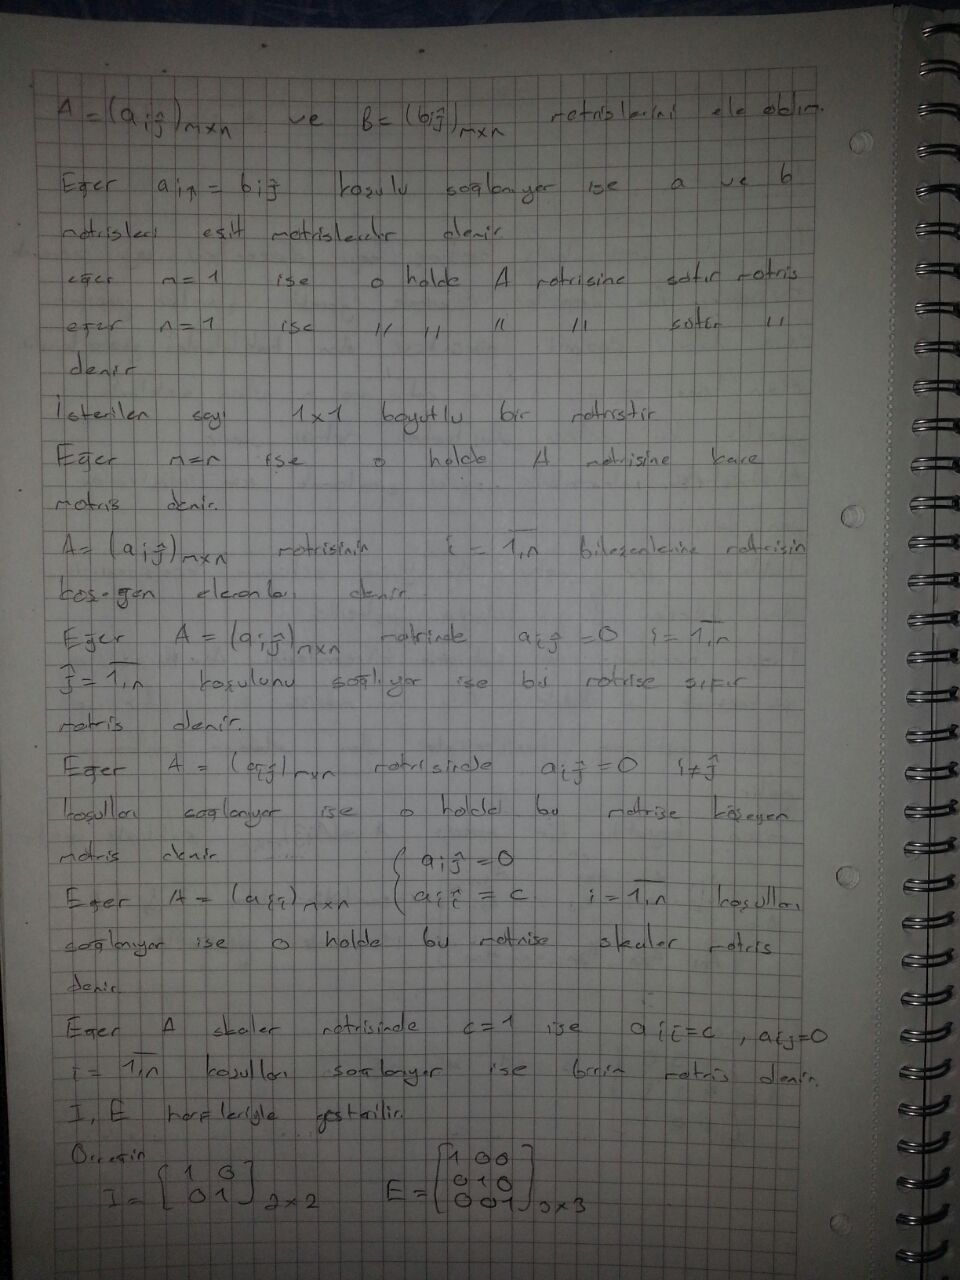 A = (aij)mxn ve B = (bij)mxn matrislerini ele alalım.
Eğer aij = bij koşulu sağlanıyor ise a ve b
matrisleri eşit matrislerdir denir
eğer m=1 ise o halde A matrisine satır matris
eğer n=1 ise " " " " satır "
denir
İsterilen sayı 1x1 boyutlu bir matristir
Eğer m=n ise o halde A matrisine kare
matris denir.
A = (aij)mxn matrisinin i = 1,n bileşenlerine matrisin
köşegen elemanları denir.
Eğer A = (aij)mxn matrinde aij = 0 i = 1,n
j = 1,n koşulunu sağlıyor ise bu matrise sıfır
matris denir.
Eğer A = (aij)mxn matrisinde aij = 0 i≠j
koşulları sağlanıyor ise o halde bu matrise köşegen
matris denir { aij = 0
Eğer A = (aij)nxn { aii = c i = 1,n koşulları
sağlanıyor ise o halde bu matrise skaler matris
denir
Eğer A skaler matrisinde c=1 ise aii=c, aij=0
i = 1,n koşulları sağlanıyor ise birim matris denir.
I, E harfleriyle gösterilir.
Örneğin [1 0 [1 0 0
I = 0 1]2x2 E = 0 1 0
0 0 1]3x3